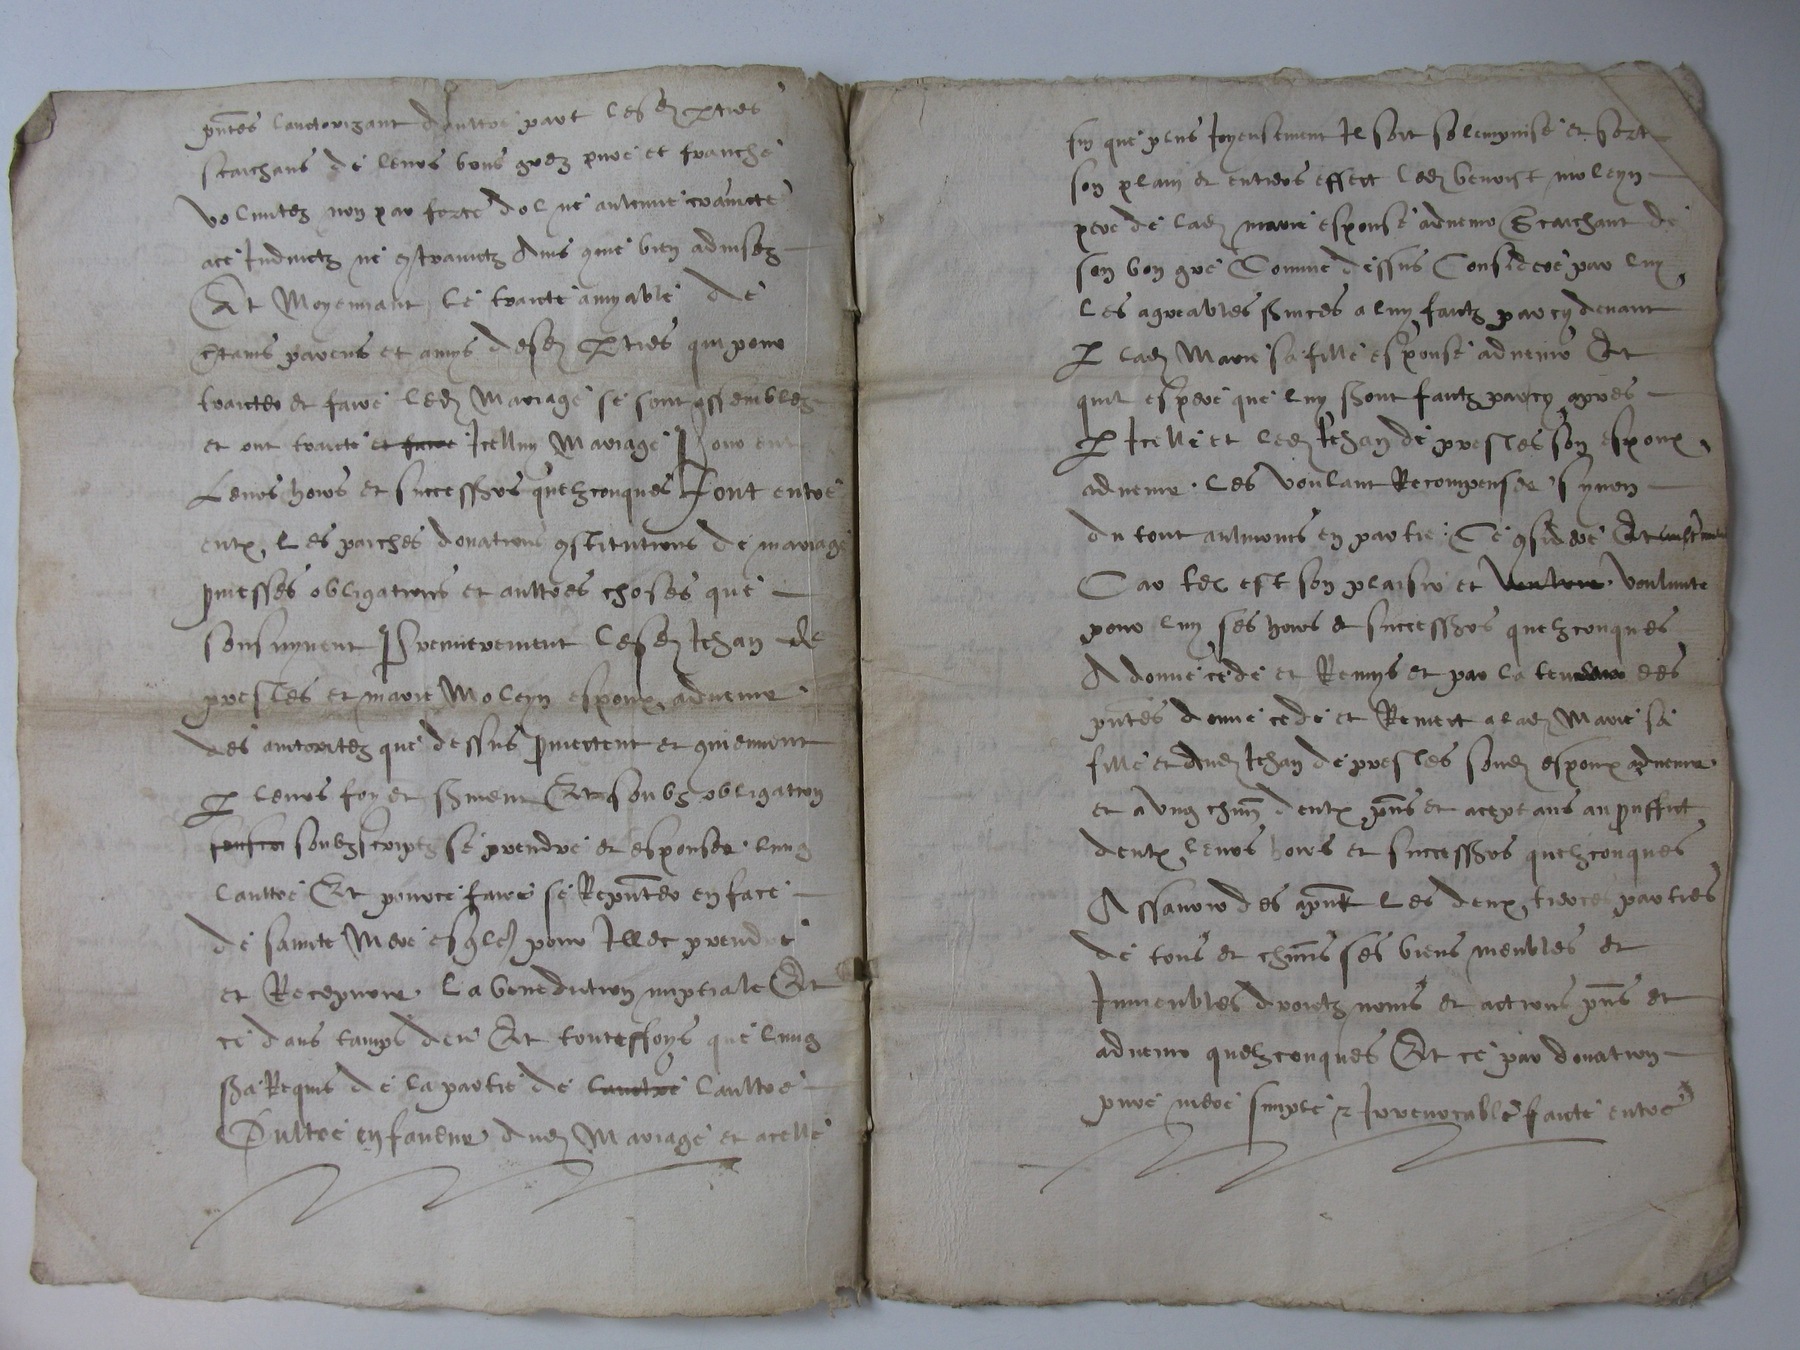 pntes lauctorizant daultre part lesd parties
scaichans de leurs bons grez pure et franche
voluntez non par force dol ne aulcune craincte
ace Inductz ne contrainctz Ains que bien advisez
Et Moyennant le traicte amyable de
ctains parens et amys desd parties qui pour
traicter et faire led Mariage se sont assemblez
et ont traicte et faire Icelluy Mariage Pour eux
Leurs hoirs et successeurs quelzconques Font entre
eulx Les paiches donations constitutions de mariage
pmesses obligations et aultres choses que
sensuyvent Premierement lesd Jehan de
presles et marie Moleyn espoux advenir
des auctoritez que dessus pmectent et conviennent
par leurs foy et serment Et soubz obligation
soubzscriptz se prendre et espouser lung
laultre Et pource faire se Repnter en face
de saincte Mere esglese pour Illec prendre
et Recepvoir La benediction nuptiale Et
ce dans temps deu Et touteffoys que lung
sera Requis de la partie de laultre laultre
Oultre en faveur dud Mariage et acelle
fin que plus Joyeusement Il soit solempnise et sorte
son plain et entiers effect led benoist moleyn
pere de lad marie espouse advenir Scaichant de
son bon gre Comme dessus Considere par luy
Les agreables services a luy faictz par cy devant
par lad Marie sa fille espouse advenir Et
quil espere que luy seront faictz par cy apres
par Icelle et led Jehan de presles son espoux
advenir Les voulant Recompenser synon
du tout aulmoins en partie Ce considere Et
Car tel est son plaisir et vouloir voulunte
pour luy ses hoirs et successeurs quelzconques
A donne cede et Remys et par la teneur des
pntes donne cede et Remect a lad Marie sa
fille et aud Jehan de presles soud espoux advenir
et a Ung chun deulx pns et aceptans au prouffict
deulx Leurs hoirs et successeurs quelzconques
Assavoir des apnt Les deux tierces parties
de tous et chuns ses biens meubles et
Inmeubles droictz noms et actions pns et
advenir quelzconques Et ce par donation
pure mere simple & Irrevocable faicte entre